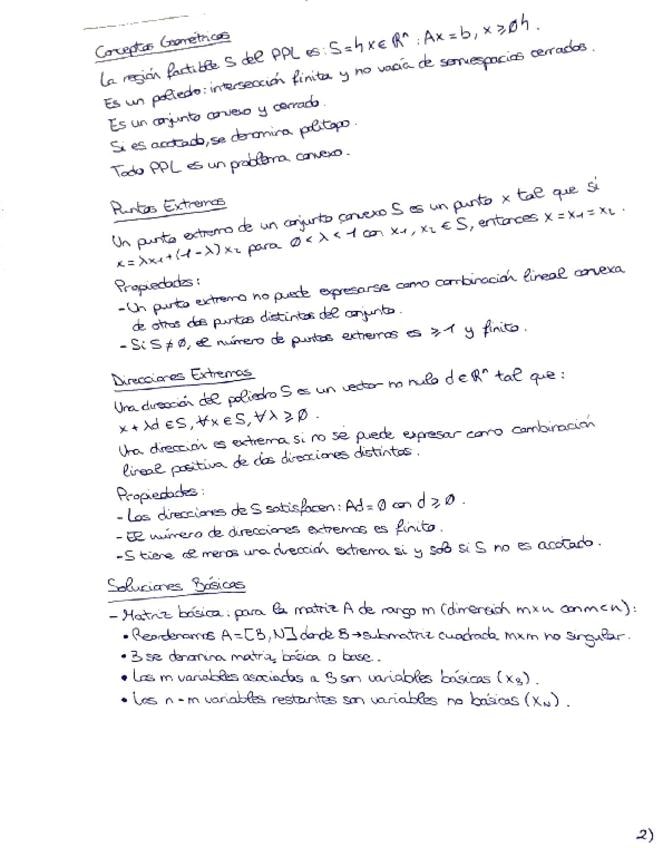 Conceptos Geométricos
La región factible S del PPL es: S={x∈ℝⁿ: Ax=b, x≥0}.
Es un poliedo: intersección finita y no vacía de semiespacios cerrados.
Es un conjunto convexo y cerrado.
Si es acotado, se denomina politopo.
Todo PPL es un problema convexo.
Puntos Extremos
Un punto extremo de un conjunto convexo S es un punto x tal que si
x=λx₁+(1-λ)x₂ para 0<λ<1 con x₁, x₂ ∈ S, entonces x=x₁=x₂.
Propiedades:
- Un punto extremo no puede expresarse como combinación lineal convexa
de otros dos puntos distintos del conjunto.
- Si S≠∅, el número de puntos extremos es ≥1 y finito.
Direcciones Extremas
Una dirección del poliedro S es un vector no nulo d∈ℝⁿ tal que:
x+λd∈S, ∀x∈S, ∀λ≥0.
Una dirección es extrema si no se puede expresar como combinación
lineal positiva de dos direcciones distintas.
Propiedades:
- Las direcciones de S satisfacen: Ad=0 con d≥0.
- El número de direcciones extremas es finito.
- S tiene al menos una dirección extrema si y solo si S no es acotado.
Soluciones Básicas
- Matriz básica: para la matriz A de rango m (dimensión mxn con m<n):
• Reordenamos A=[B,N] donde B→submatriz cuadrada mxm no singular.
• B se denomina matriz básica o base.
• Las m variables asociadas a B son variables básicas (x_B).
• Las n-m variables restantes son variables no básicas (x_N).
2)